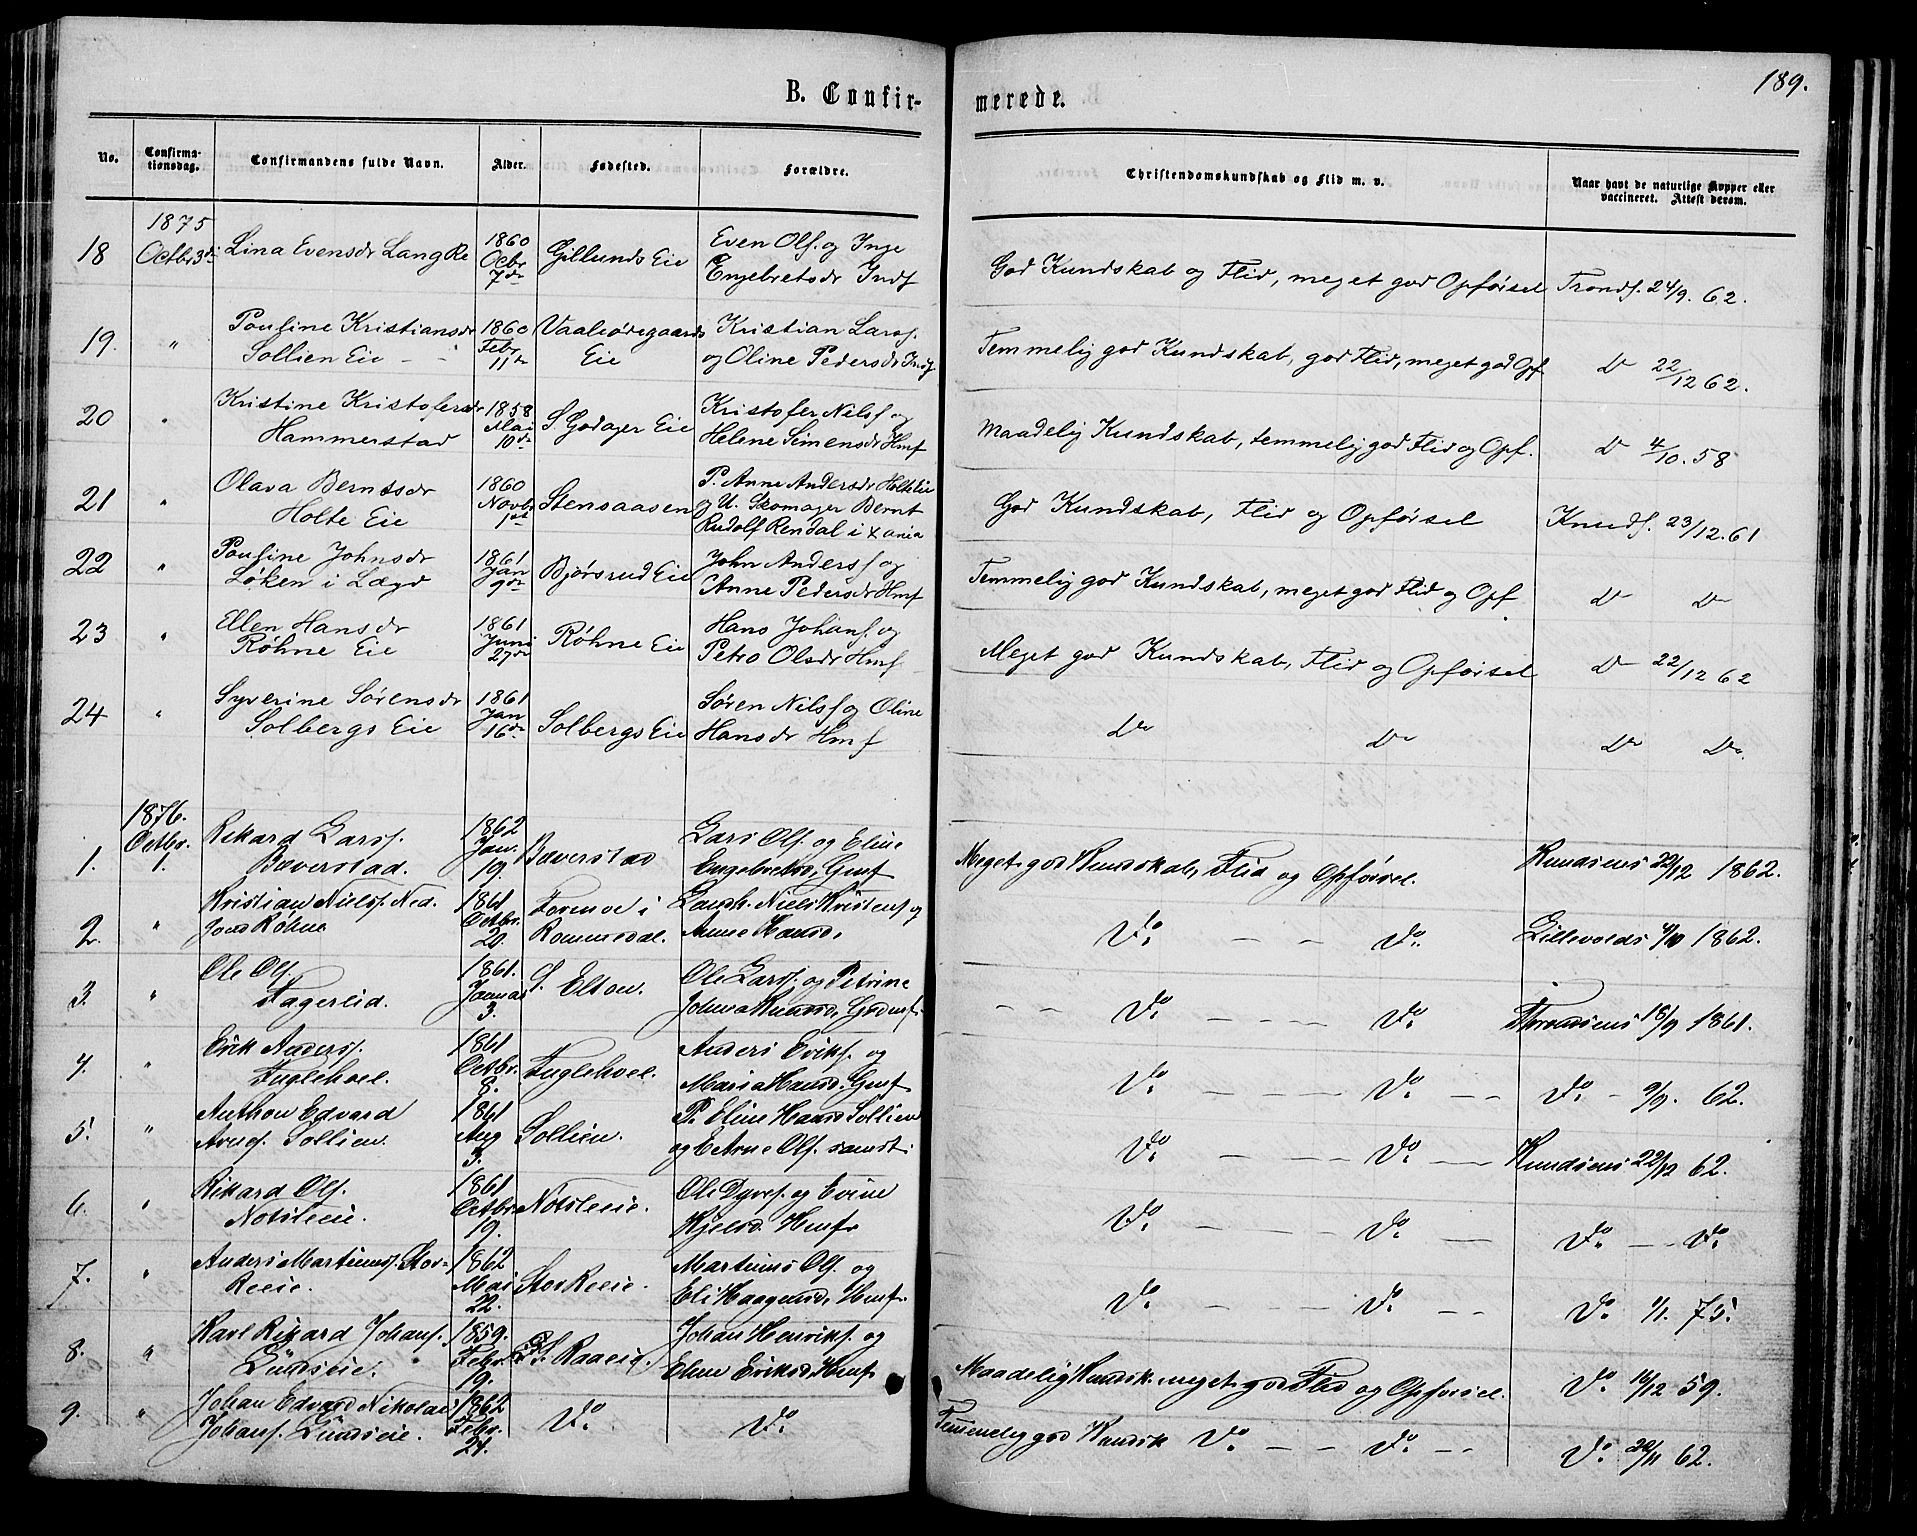 189.
B. Confirmerede.
No. Confirmationsdag. Confirmandens fulde Navn. Alder. Fødested. Forældre. Christendomskundskab og Flid m. v. Naar havt de naturlige Kopper eller vaccineret. Attest derom.
1875
18 Octbr 3d Lina Evensdr Lang Re 1860 Ocbr 7de Gillunds Eie Even Ols. og Inge Engebretsdr Inds God Kundskab og Flid, meget god Opførsel Tronds. 24/9. 62.
19. " Pauline Kristiansdr Sollien Eie 1860 Febr 11te Vaaleødegaards Eie Kristian Larss. og Oline Pedersdr Inds Temmelig god Kundskab, god Flid, meget god Opf. Do 22/12 62.
20 " Kristine Kristofersdr Hammerstad 1858 Mai 10de S. Godager Eie Kristofer Nilss og Helene Simensdr Hmf Maadelig Kundskab, temmelig god Flid og Opf. Do 4/10. 58
21 " Olava Berntsdr Holte Eie 1860 Novbr 1ste Stensaasen P. Anne Andersdr Holte Eie og U. Skomager Bernt Rudolf Rendal i Xania God Kundskab, Flid og Opførsel Knuds. 23/12. 61
22 " Pauline Johnsdr Løken i Lægd 1861 Jan 9de Bjørsrud Eie John Anderss og Anne Pedersdr Hmf Temmelig god Kundskab, meget god Flid og Opf. Do Do
23 " Ellen Hansdr Røhne Eie 1861 Juni 27de Røhne Eie Hans Johans. og Petro Olsdr Hmf Meget god Kundskab, Flid og Opførsel Do 22/12 62
24 " Syverine Sørensdr Solbergs Eie 1861 Jan 16de Solbergs Eie Søren Nilss og Oline Hansdr Hmf Do Do Do Do.
1876.
1. Octbr. 1. Rikard Larss. Baverstad. 1862 Jan. 19. Baverstad Lars Ols. og Eline Engebretsd. Gmf Meget god Kundskab, Flid og Opførsel. Knudsens 22/12 1862.
2. " Kristian Nielss. Ned. Røhne 1861 Octbr. 20. i Romsdal. Niels Kristens og Anne Hansd. Do. — — Do. Lillevolds 4/10 1862.
3. " Ole Ols. Fagerlid. 1861. Januar 3. S. Elton. Ole Larss. og Petrine Johna Knudsd. — — Do. — — — Do. Throndsens 18/9 1861.
4. " Erik Anderss. Fuglehoel. 1861 Octbr. 8. Fuglehoel. Anders Eriks. og Maria Hansd. Gmf Do. — — — Do. — — Do. - 9/9. 62.
5. " Anthon Edvard Arnes. Sollien. 1861 Aug 3. Sollien. P. Eline Hansd Sollien og E Arne Ols. samst. Do. — — — Do. — — Knudsens 22/12 62.
6. " Rikard Ols. Notsleeie. 1861 Octbr 19. Notsleeie. Ole Dyres. og Evine Kjelsd. Hmf. Do. — — — Do. — Do. — — Do.
7. " Anders Martinus. Stor-Reeie. 1862 Mai 22. Stor Reeie. Martinus Ols. og Eli Haagensd. Hmf. Do. — — — Do. — — Do. 1/1. 75.
8. " Karl Rikard Johans. Lundseie. 1859. Febr. 19. S. Raaeie. Johan Henriks. og Eline Eriksd. Hmf. Maadelig Kundsk. meget god Flid og Opførsel. Do. 16/12 59.
9. " Johan Edvard Nikolai Johans. Lundseie. 1862 Febr. 21. Do. Do. Temmelig god Kundsk Do. — — Do. — — Do. 20/11 62.